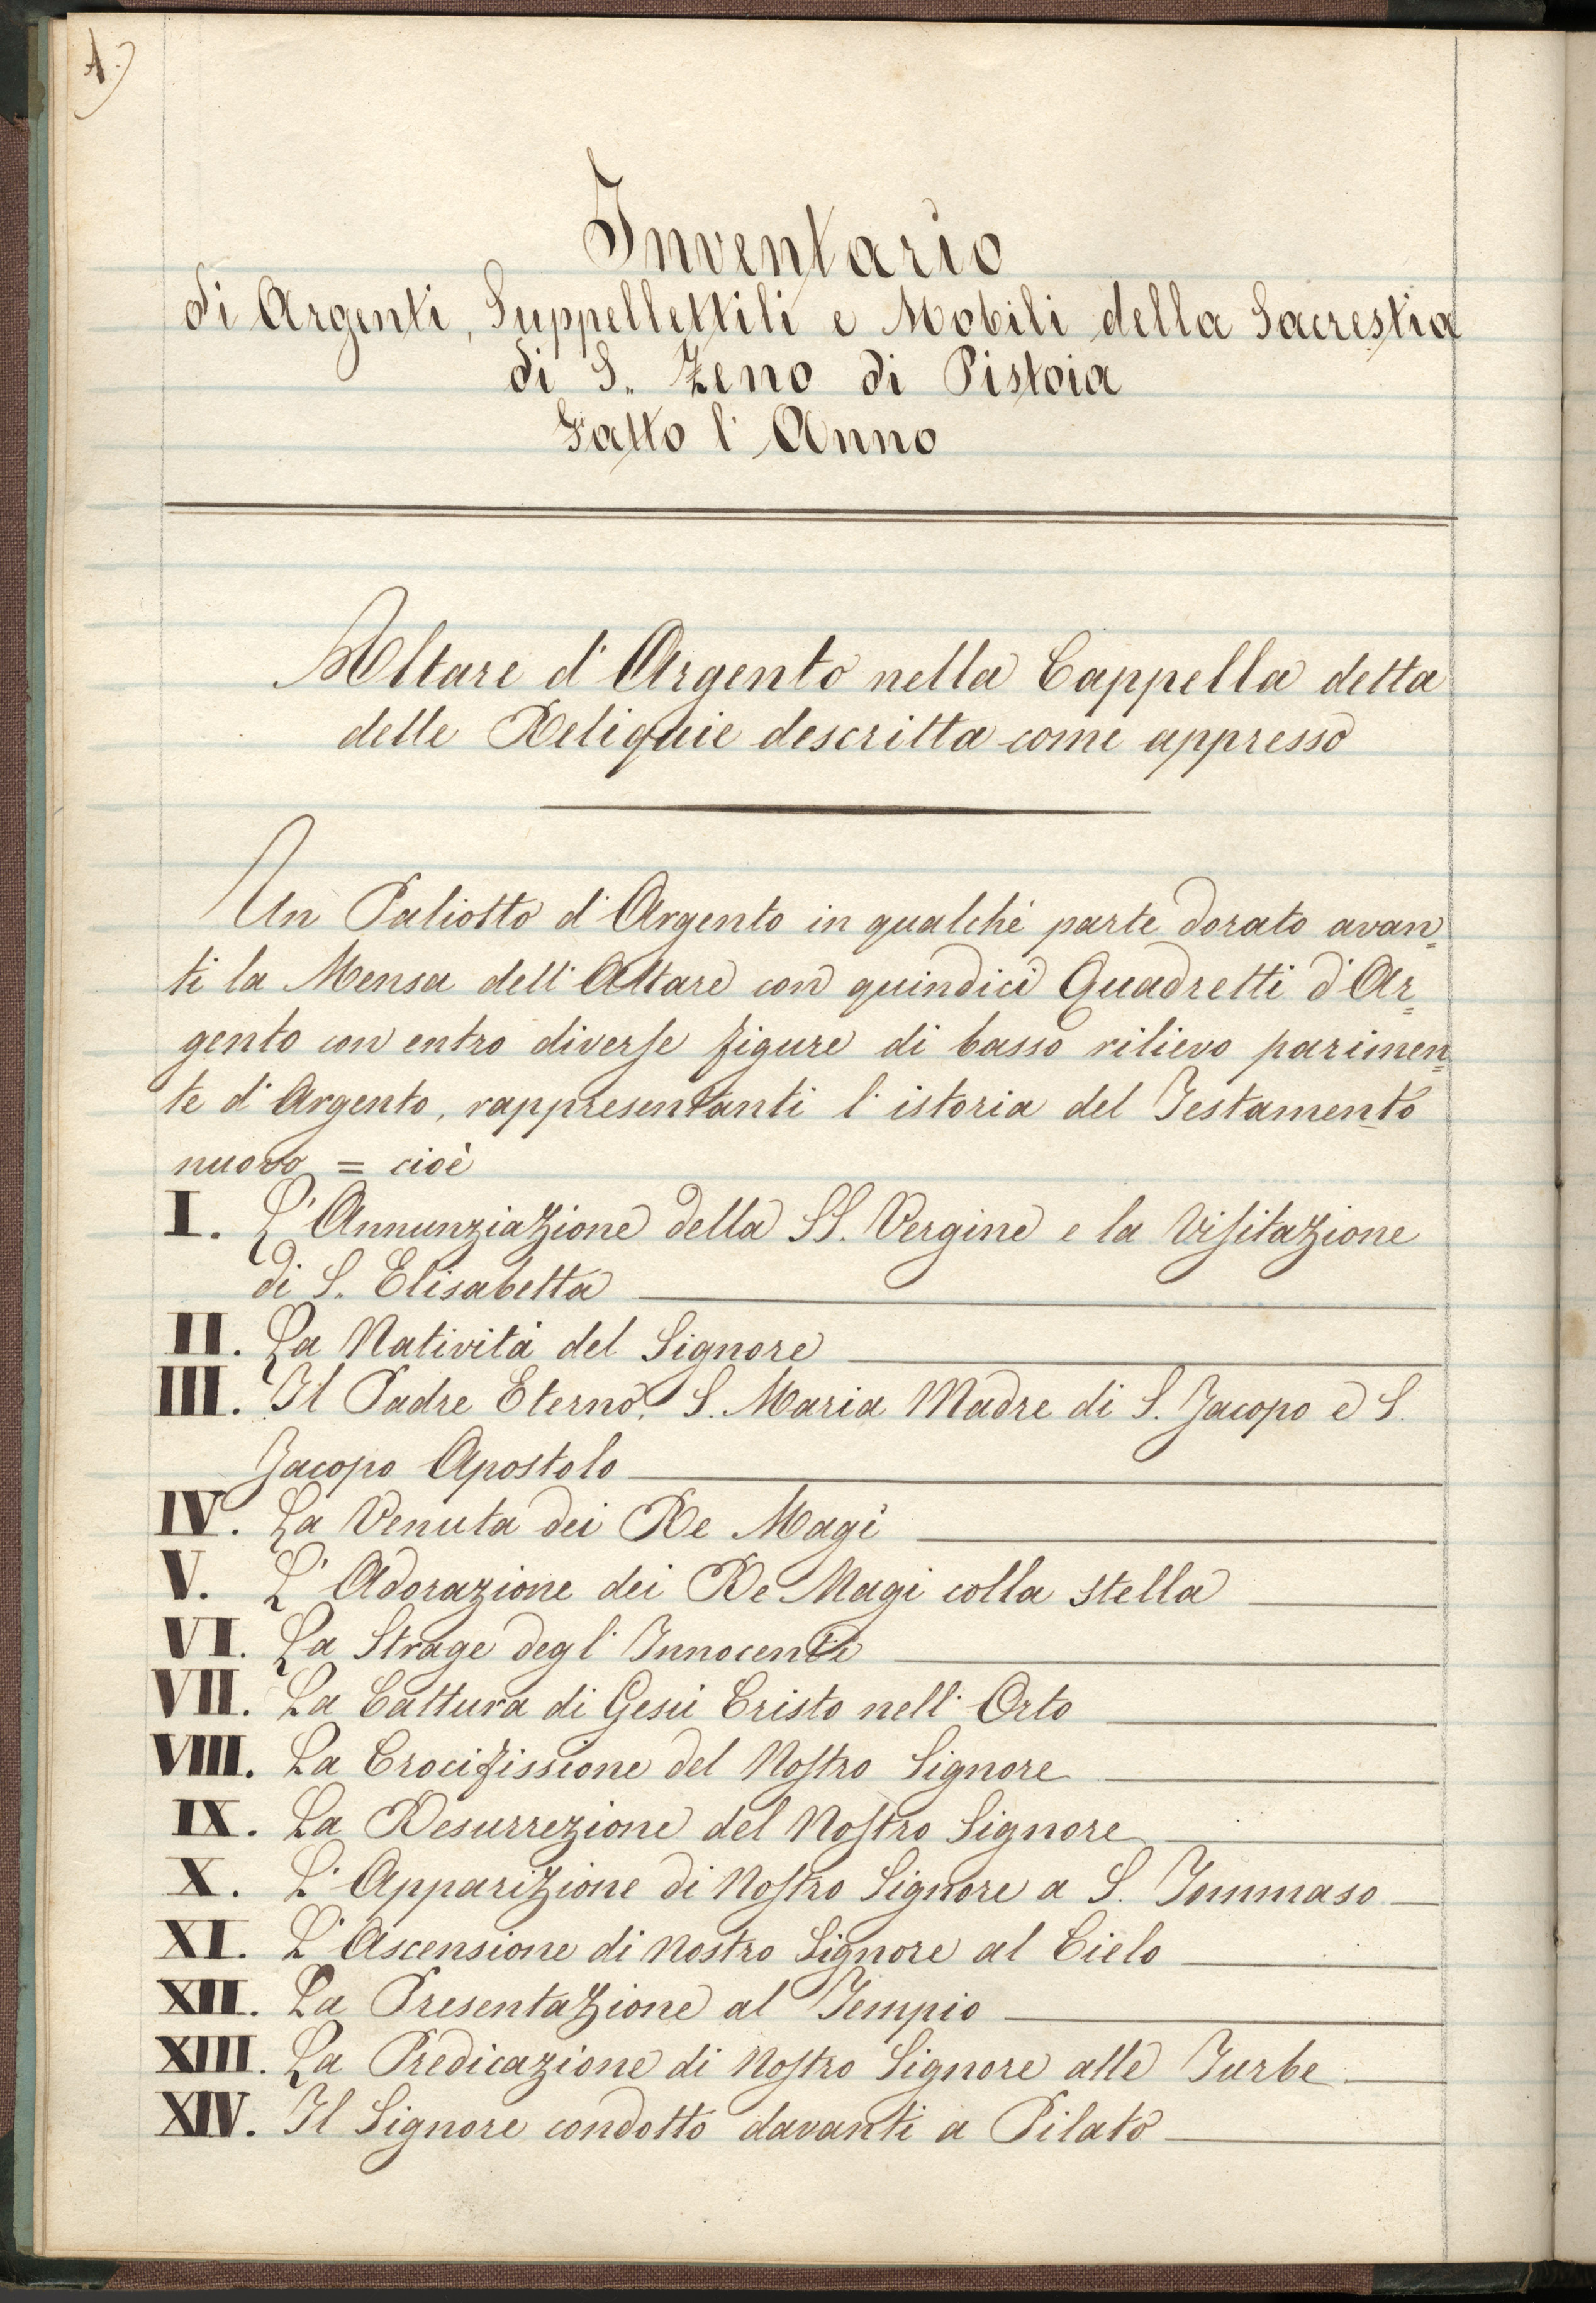 1.)
Inventario
di Argenti, Suppellettili e Mobili della Sacrestia
di S. Zeno di Pistoia
Fatto l'Anno
Altare d'Argento nella Cappella detta
delle Reliquie descritta come appresso
Un Paliotto d'Argento in qualche parte dorato avan=
ti la Mensa dell'Altare con quindici Quadretti d'Ar=
gento con entro diverse figure di basso rilievo parimen=
te d'Argento, rappresentanti l'istoria del Testamento
nuovo = cioè
I. L'Annunziazione della SS. Vergine e la Visitazione
di S. Elisabetta
II. La Natività del Signore
III. Il Padre Eterno, S. Maria Madre di S. Jacopo e S.
Jacopo Apostolo
IV. La Venuta dei Re Magi
V. L'Adorazione dei Re Magi colla stella
VI. La Strage degl'Innocenti
VII. La Cattura di Gesù Cristo nell'Orto
VIII. La Crocifissione del Nostro Signore
IX. La Resurrezione del Nostro Signore
X. L'Apparizione di Nostro Signore a S. Tommaso
XI. L'Ascensione di Nostro Signore al Cielo
XII. La Presentazione al Tempio
XIII. La Predicazione di Nostro Signore alle Turbe
XIV. Il Signore condotto davanti a Pilato